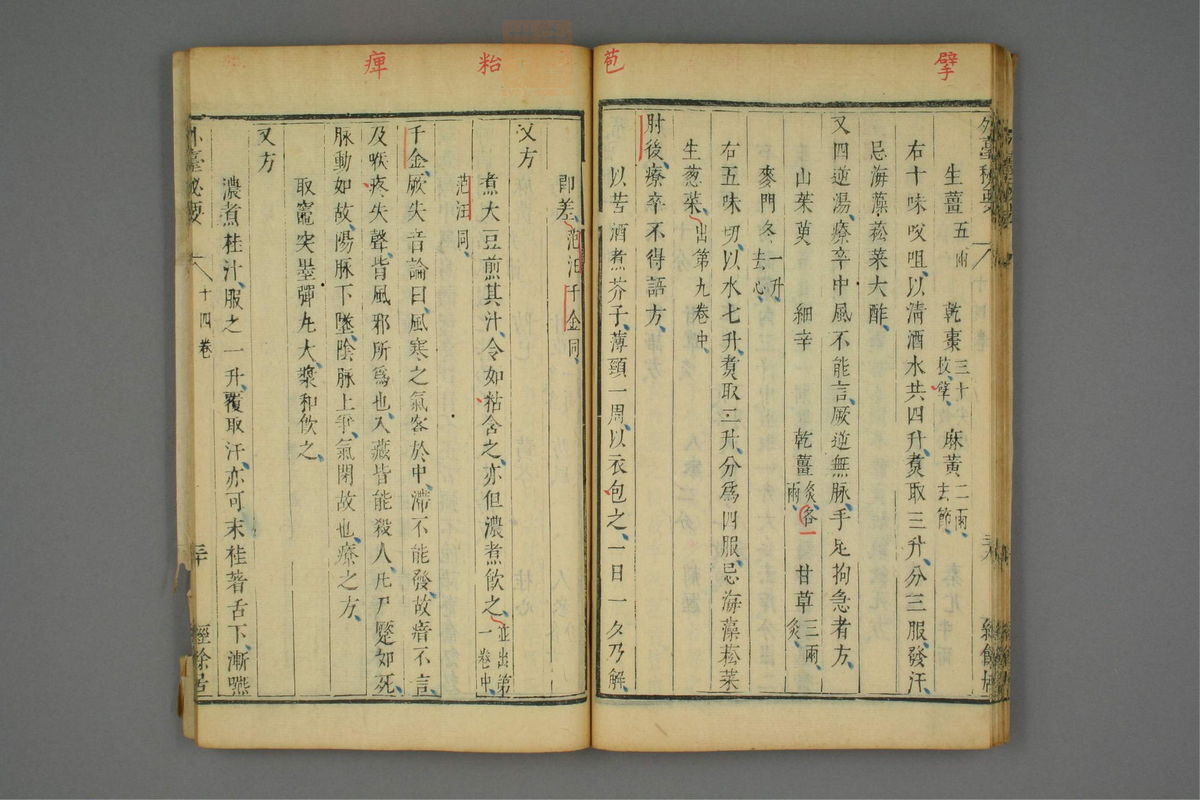 擘
苞
生薑五兩 乾棗三十枚擘 麻黃二兩去節
右十味㕮咀以清酒水共四升煑取三升分三服發汗
忌海藻菘菜大酢
又四逆湯療卒中風不能言厥逆無脉手足拘急者方
山茱萸 細辛 乾薑炙各一兩 甘草三兩炙
麥門冬一升去心
右五味切以水七升煑取二升分爲四服忌海藻菘菜
生葱菜出第九卷中
肘後療卒不得語方
以苦酒煮芥子薄頸一周以衣包之一日一夕乃解
粘
痺
即差范汪千金同
又方
煮大豆煎其汁令如粘含之亦但濃煮飲之並出第一卷中
范汪同
千金厥失音論曰風寒之氣客於中滯不能發故瘖不言
及喉疼失聲皆風邪所爲也入藏皆能殺人凡尸蹷如死
脉動如故陽脉下墜陰脉上爭氣閉故也療之方
取竈突墨彈丸大漿和飲之
又方
濃煮桂汁服之一升覆取汗亦可末桂著舌下漸嚥
外臺秘要 十四卷 二十 經餘居